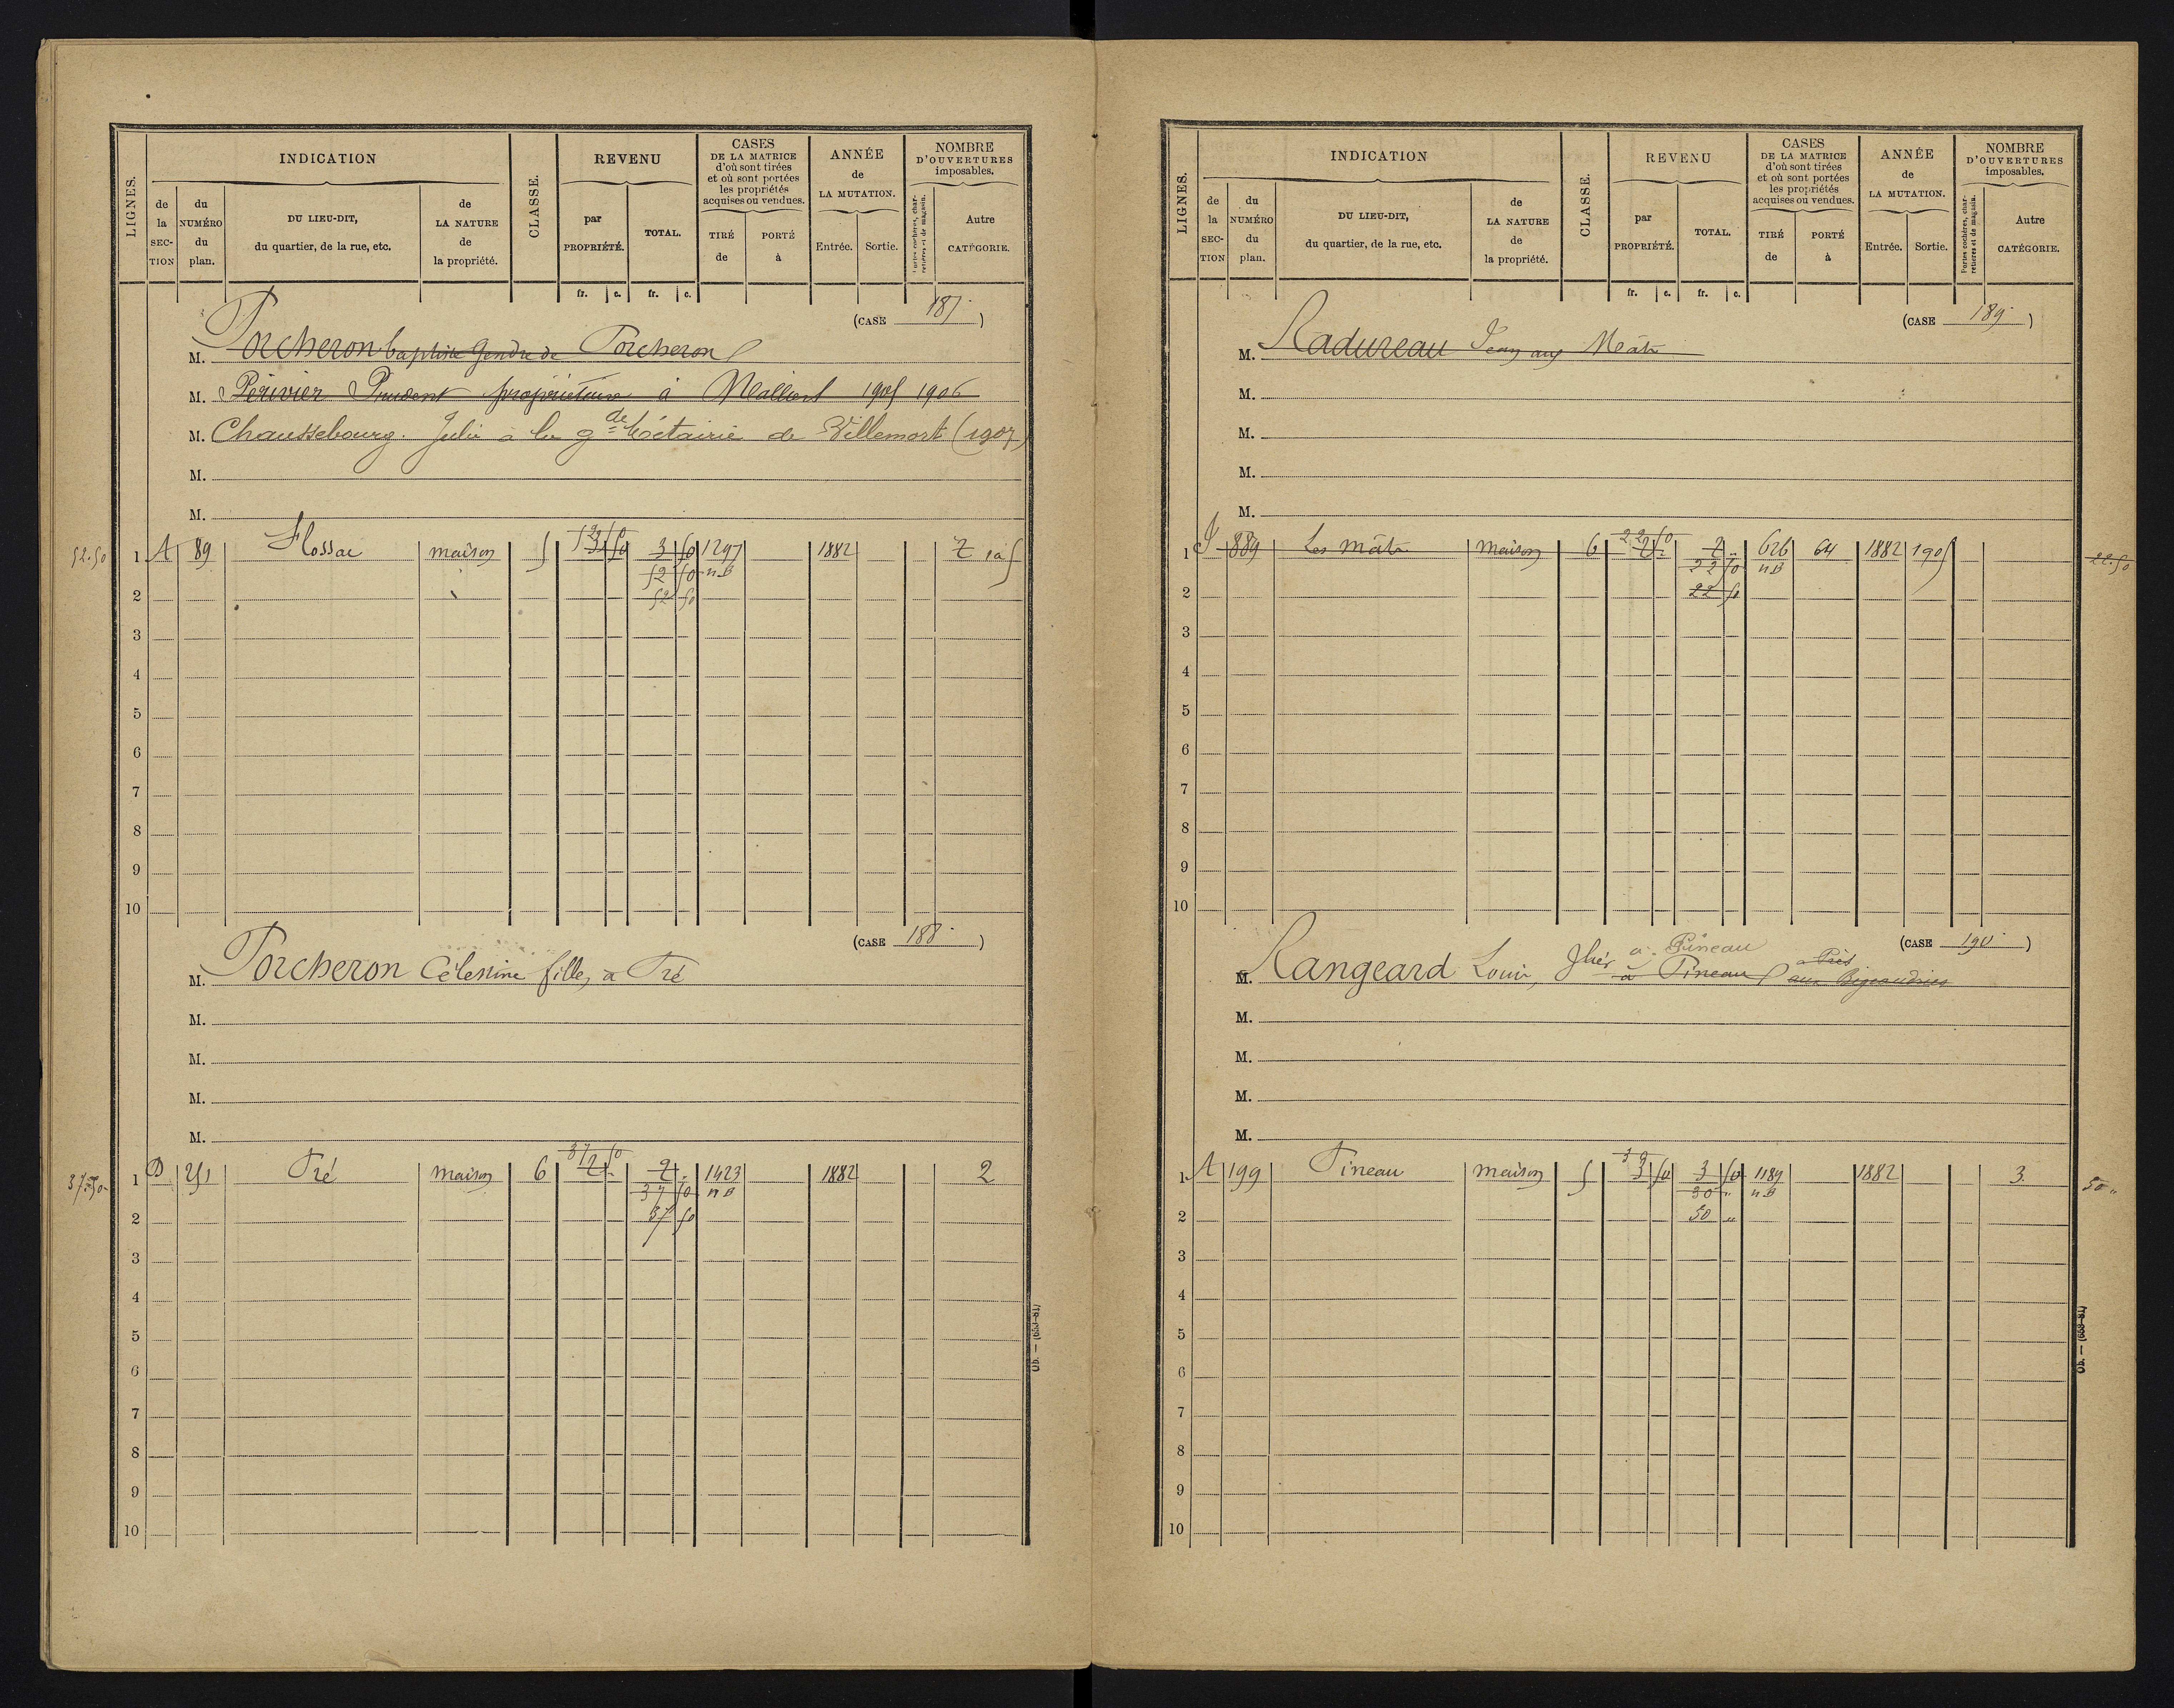 LIGNES.
INDICATION
CLASSE.
REVENU
CASES
DE LA MATRICE
d'où sont tirées
et où sont portées
les propriétés
acquises ou vendues.
ANNÉE
de
LA MUTATION.
NOMBRE
D'OUVERTURES
imposables.
de la SECTION
du NUMÉRO du plan.
DU LIEU-DIT,
du quartier, de la rue, etc.
de LA NATURE de la propriété.
par PROPRIÉTÉ.
TOTAL.
TIRÉ de
PORTÉ à
Entrée.
Sortie.
Portes cochères, charretières et de magasin.
Autre CATÉGORIE.
fr. c. fr. c.
(CASE 187)
M. Porcheron baptiste Gendre de Porcheron
M. Périvier Prudent propriétaire à 1905 1906
M. Chaussebourg. Julie à la gde Métairie de Villemort (1907)
M.
M.
52.50 1 A 89 Flossac maison 5 52 50 3 50 1297 1882
52 50 n.B
2 52 50
3
4
5
6
7
8
9
10
(CASE 188)
M. Porcheron Célestine fille, à Pré
M.
M.
M.
M.
37.50 1 D 251 Pré maison 6 37 50 2 " 1423 1882 2
37 50 n B
2 37 50
3
4
5
6
7
8
9
10
Ob. — (653-81)
LIGNES.
INDICATION
CLASSE.
REVENU
CASES
DE LA MATRICE
d'où sont tirées
et où sont portées
les propriétés
acquises ou vendues.
ANNÉE
de
LA MUTATION.
NOMBRE
D'OUVERTURES
imposables.
de la SECTION
du NUMÉRO du plan.
DU LIEU-DIT,
du quartier, de la rue, etc.
de LA NATURE de la propriété.
par PROPRIÉTÉ.
TOTAL.
TIRÉ de
PORTÉ à
Entrée.
Sortie.
Portes cochères, charretières et de magasin.
Autre CATÉGORIE.
fr. c. fr. c.
(CASE 189)
M. Radureau Jean aux Mâts
M.
M.
M.
M.
1 889 Les mâts maison 6 22 50 2 " 626 64 1882 1905 22.50
22 50 n B
2 22 50
3
4
5
6
7
8
9
10
(CASE 190)
à Pineau
M. Rangeard Louis, à Pineau
M.
M.
M.
M.
1 A 199 Pineau maison 5 3 50 3 50 1189 1882 3 50 "
n B
2 50 "
3
4
5
6
7
8
9
10
Ob. — (653-81)